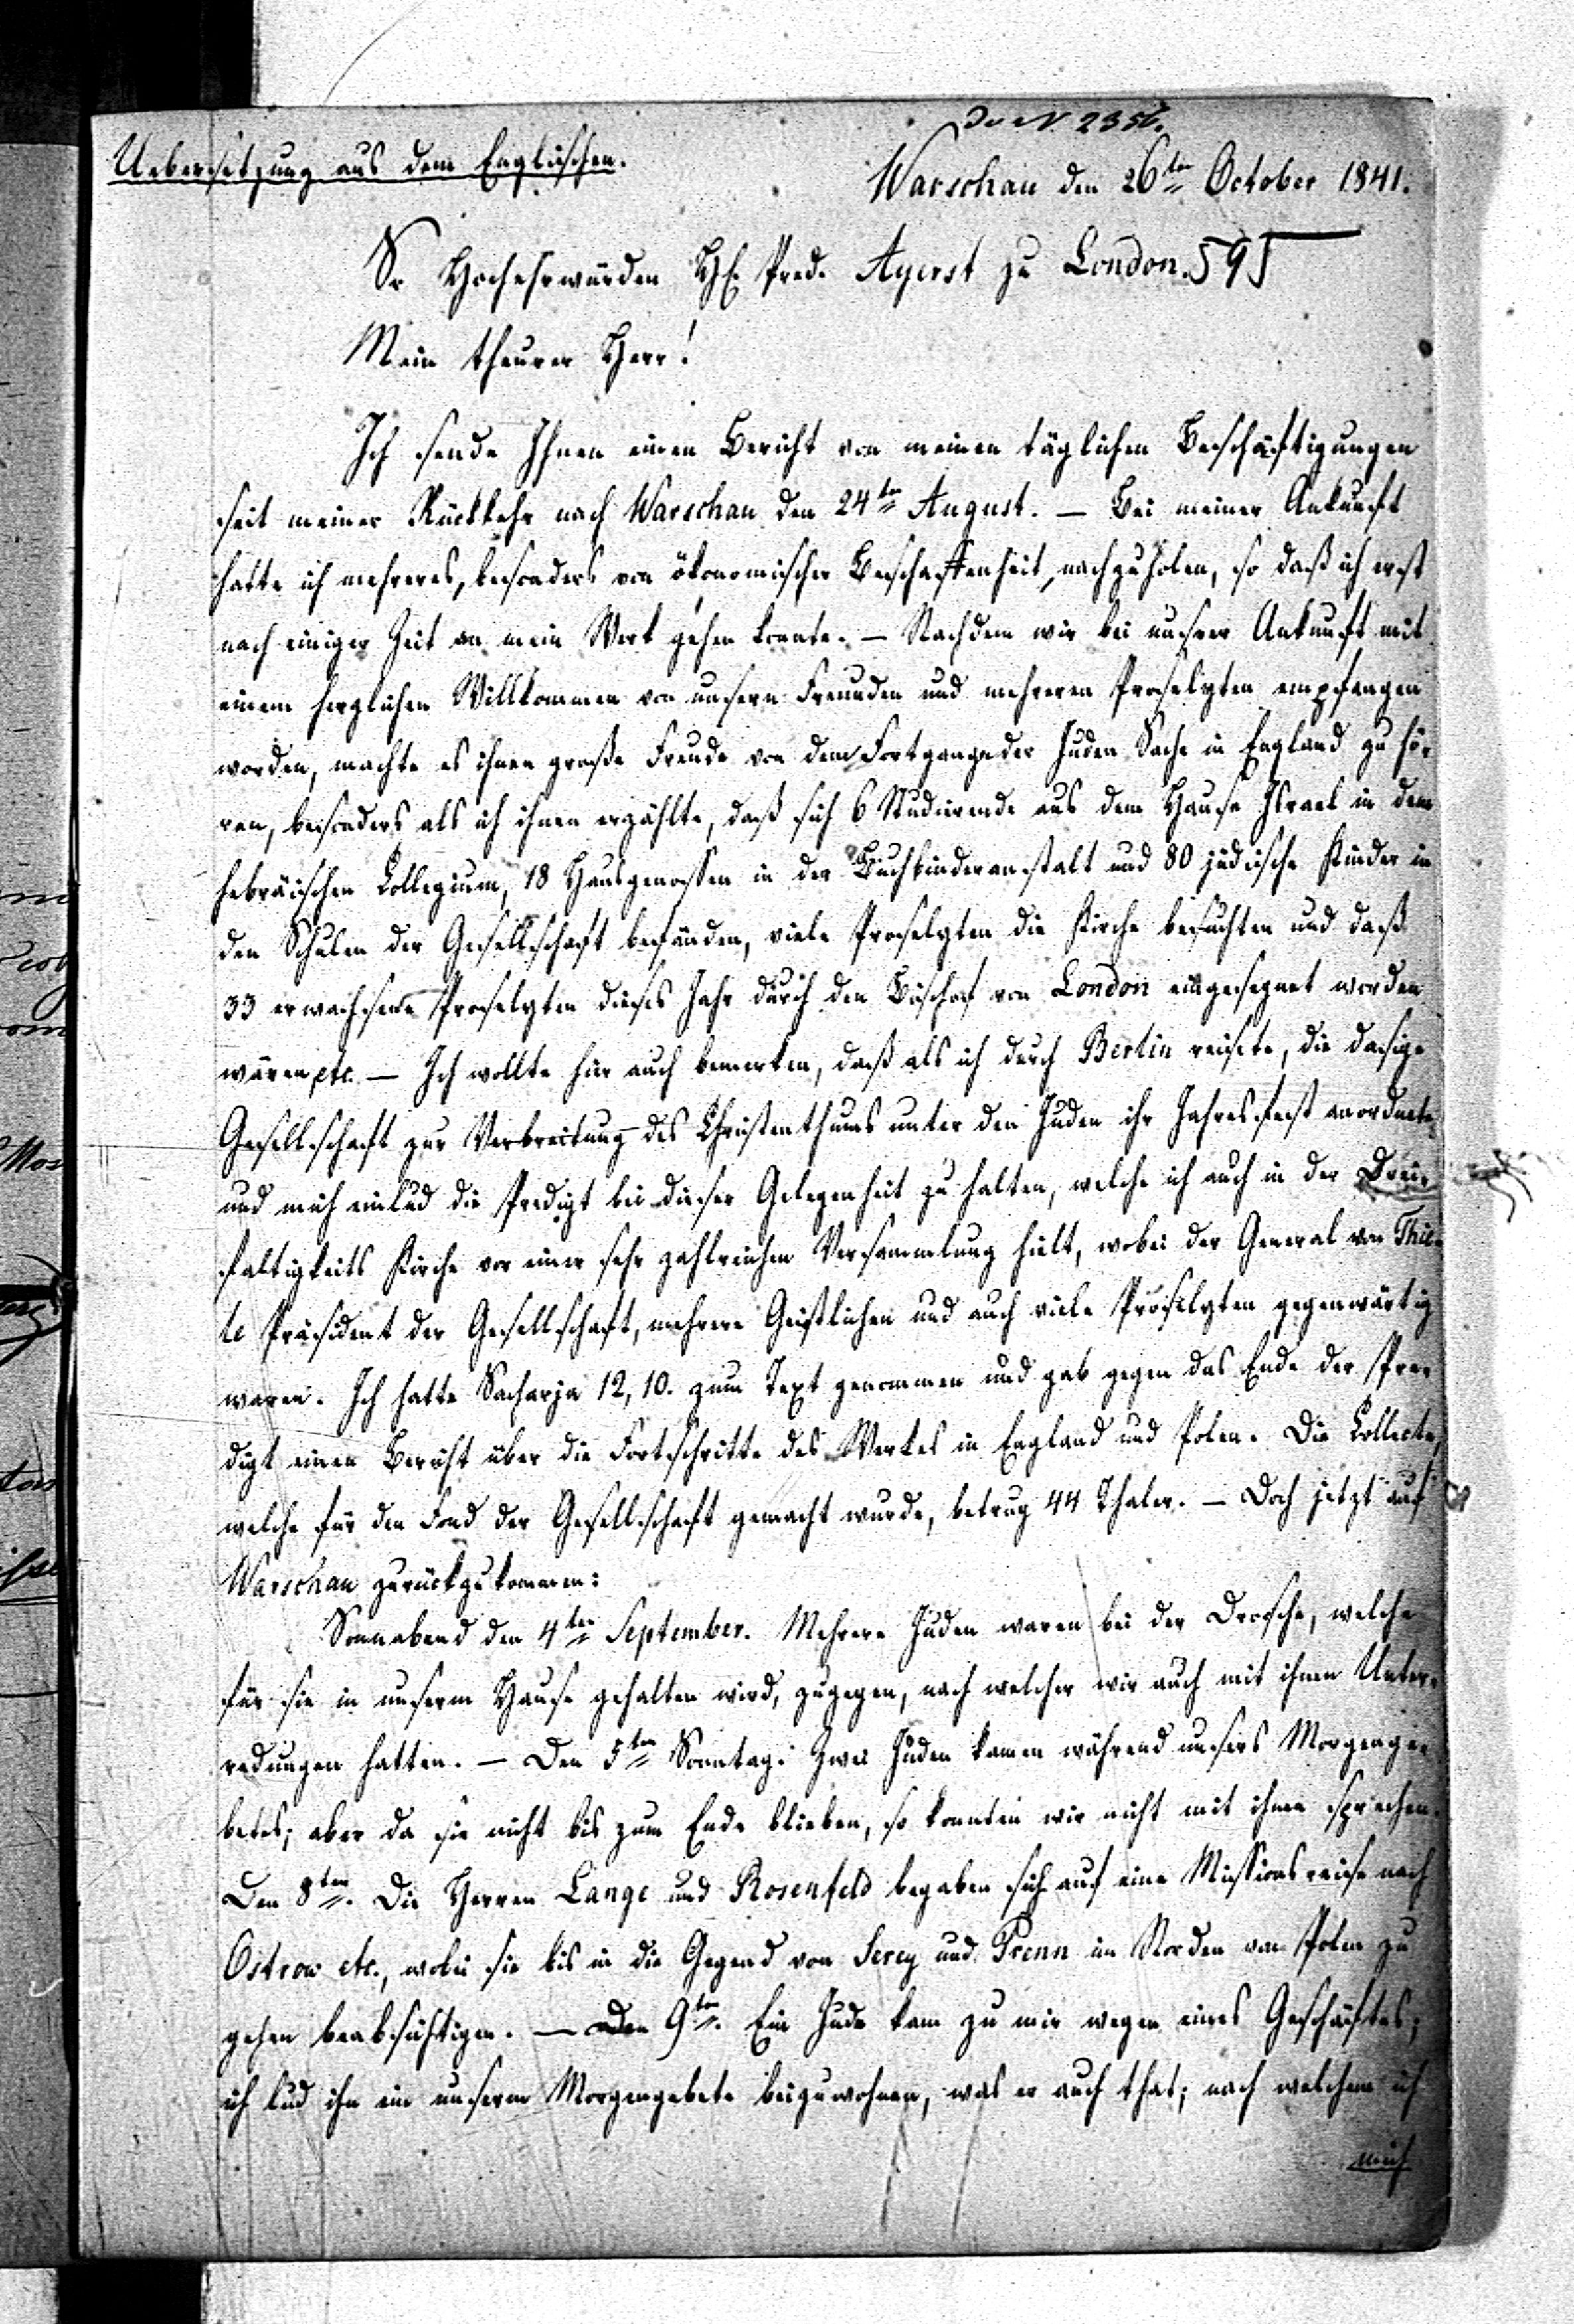 Do N. 2356.
Uebersetzung aus dem Englischen.
Warschau den 26ten October 1841.
Sr Hochehrwürden H. Pred. Ayerst zu London. 595
Mein theurer Herr!
Ich sende Ihnen einen Bericht von meinen täglichen Beschäftigungen
seit meiner Rückkehr nach Warschau den 24ten August. — Bei meiner Ankunft
hatte ich mehreres, besonders von ökonomischer Beschaffenheit, nachzuholen, so daß ich erst
nach einiger Zeit an mein Werk gehen konnte. — Nachdem wir bei unsrer Ankunft mit
einem herzlichen Willkommen von unsern Freunden und mehreren Proselyten empfangen
worden, machte es ihnen große Freude von dem Fortgange der Juden Sache in England zu hö-
ren, besonders als ich ihnen erzählte, daß sich 6 Studierende aus dem Hause Israel in dem
hebräischen Collegium, 18 Hausgenossen in der Buchbinderanstalt und 80 jüdische Kinder in
den Schulen der Gesellschaft befänden, viele Proselyten die Kirche besuchten und daß
33 erwachsene Proselyten dieses Jahr durch den Bischof von London eingesegnet worden
wären etc. — Ich wollte hier auch bemerken, daß als ich durch Berlin reisete, die dasige
Gesellschaft zur Verbreitung des Christenthums unter den Juden ihr Jahresfest anordnete,
und mich einlud die Predigt bei dieser Gelegenheit zu halten, welche ich auch in der Drei-
faltigkeits Kirche vor einer sehr zahlreichen Versammlung hielt, wobei der General von Thie-
le Präsident der Gesellschaft, mehrere Geistlichen und auch viele Proselyten gegenwärtig
waren. Ich hatte Sacharja 12, 10. zum Text genommen und gab gegen das Ende der Pre-
digt einen Bericht über die Fortschritte des Werkes in England und Polen. Die Collecte,
welche für den Fond der Gesellschaft gemacht wurde, betrug 44 Thaler. — Doch jetzt auf
Warschau zurückzukommen:
Sonnabend den 4ten September. Mehrere Juden waren bei der Drosche, welche
für sie in unserm Hause gehalten wird, zugegen, nach welcher wir auch mit ihnen Unter-
redungen hatten. — Den 5ten Sonntag. Zwei Juden kamen während unsers Morgenge-
betes; aber da sie nicht bis zum Ende blieben, so konnten wir nicht mit ihnen sprechen.
Den 8ten. Die Herren Lange und Rosenfeld begaben sich auf eine Missionsreise nach
Ostrow etc., wobei sie bis in die Gegend von Serey und Prenn im Norden von Polen zu
gehen beabsichtigen. — Den 9ten. Ein Jude kam zu mir wegen eines Geschäftes;
ich lud ihn ein unserm Morgengebete beizuwohnen, was er auch that; nach welchem ich
mich